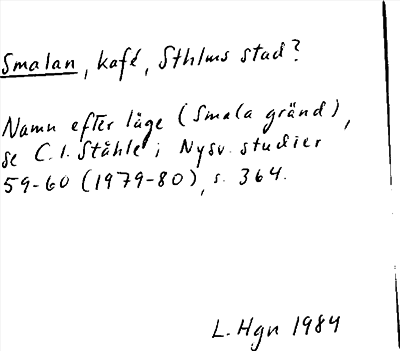 Smalan, kafé, Sthlms stad?
Namn efter läge (Smala gränd),
se C.I. Ståhle i Nysv. studier
59-60 (1979-80), s. 364.
L. Hgn 1984